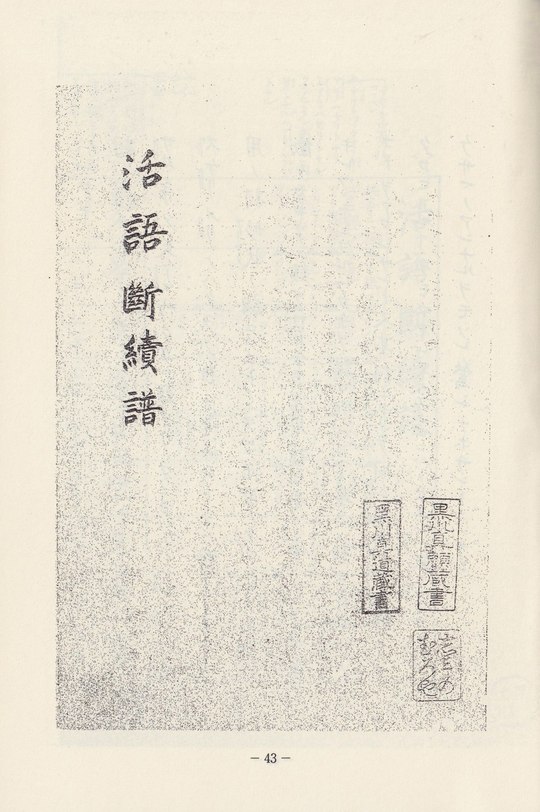 活語斷續譜
黒川真頼蔵書
黒川真道藏書
− 43 −